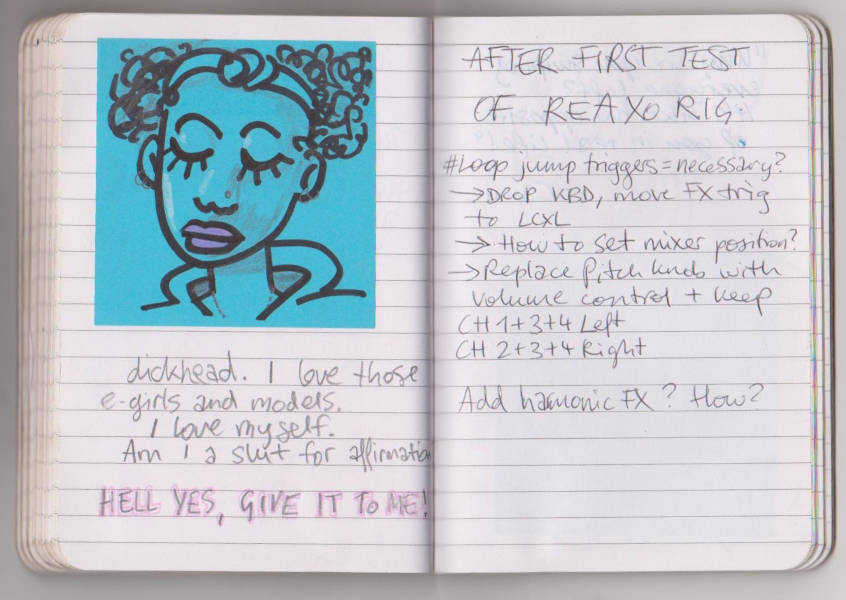 dickhead. I love those
e-girls and models.
I love myself.
Am I a slut for affirmation
HELL YES, GIVE IT TO ME!
AFTER FIRST TEST
OF REAXO RIG
#Loop jump triggers = necessary?
→ DROP KBD, move FX trig
to LCXL
→ How to set mixer position?
→ Replace Pitch knob with
volume control + keep
CH 1+3+4 Left
CH 2+3+4 Right
Add harmonic FX? How?